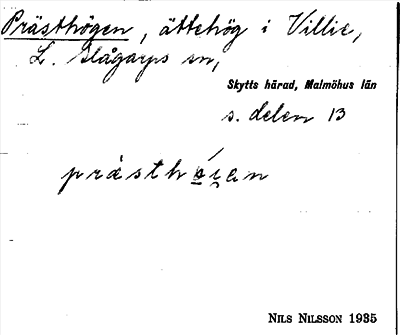 Prästhögen, ättehög i Villie,
L. Slågarps sn,
Skytts härad, Malmöhus län
s. delen 13
NILS NILSSON 1935